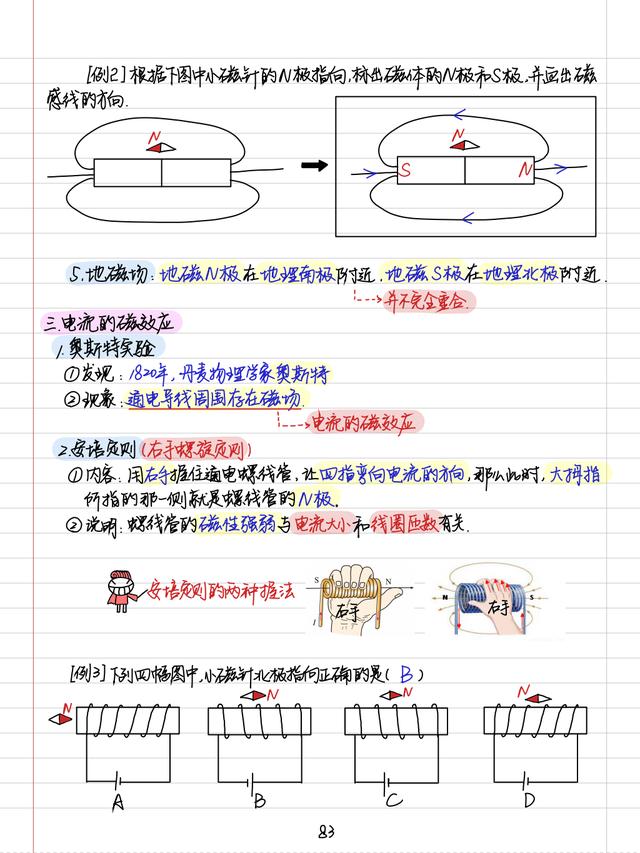 [例2]根据下图中小磁针的N极指向,标出磁体的N极和S极,并画出磁
感线的方向.
N
N
S
N
5.地磁场:地磁N极在地理南极附近.地磁S极在地理北极附近.
并不完全重合.
三.电流的磁效应
1.奥斯特实验
①发现:1820年,丹麦物理学家奥斯特
②现象:通电导线周围存在磁场.
电流的磁效应
2.安培定则(右手螺旋定则)
①内容:用右手握住通电螺线管,让四指弯向电流的方向,那么此时,大拇指
所指的那一侧就是螺线管的N极.
②说明:螺线管的磁性强弱与电流大小和线圈匝数有关.
安培定则的两种握法
S
N
I
右手
N
S
右手
[例3]下列四幅图中,小磁针北极指向正确的是(B)
N
N
N
N
A
B
C
D
83